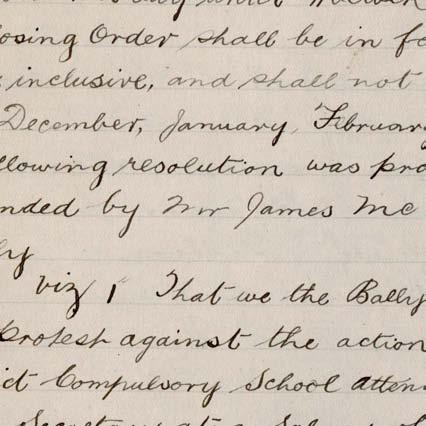 osing Order shall be in fo
inclusive, and shall not
December, January, February
llowing resolution was pro
nded by Mr James Mc
ly
viz / That we the Bally
Protest against the action
ict Compulsory School atten
Secretary at a